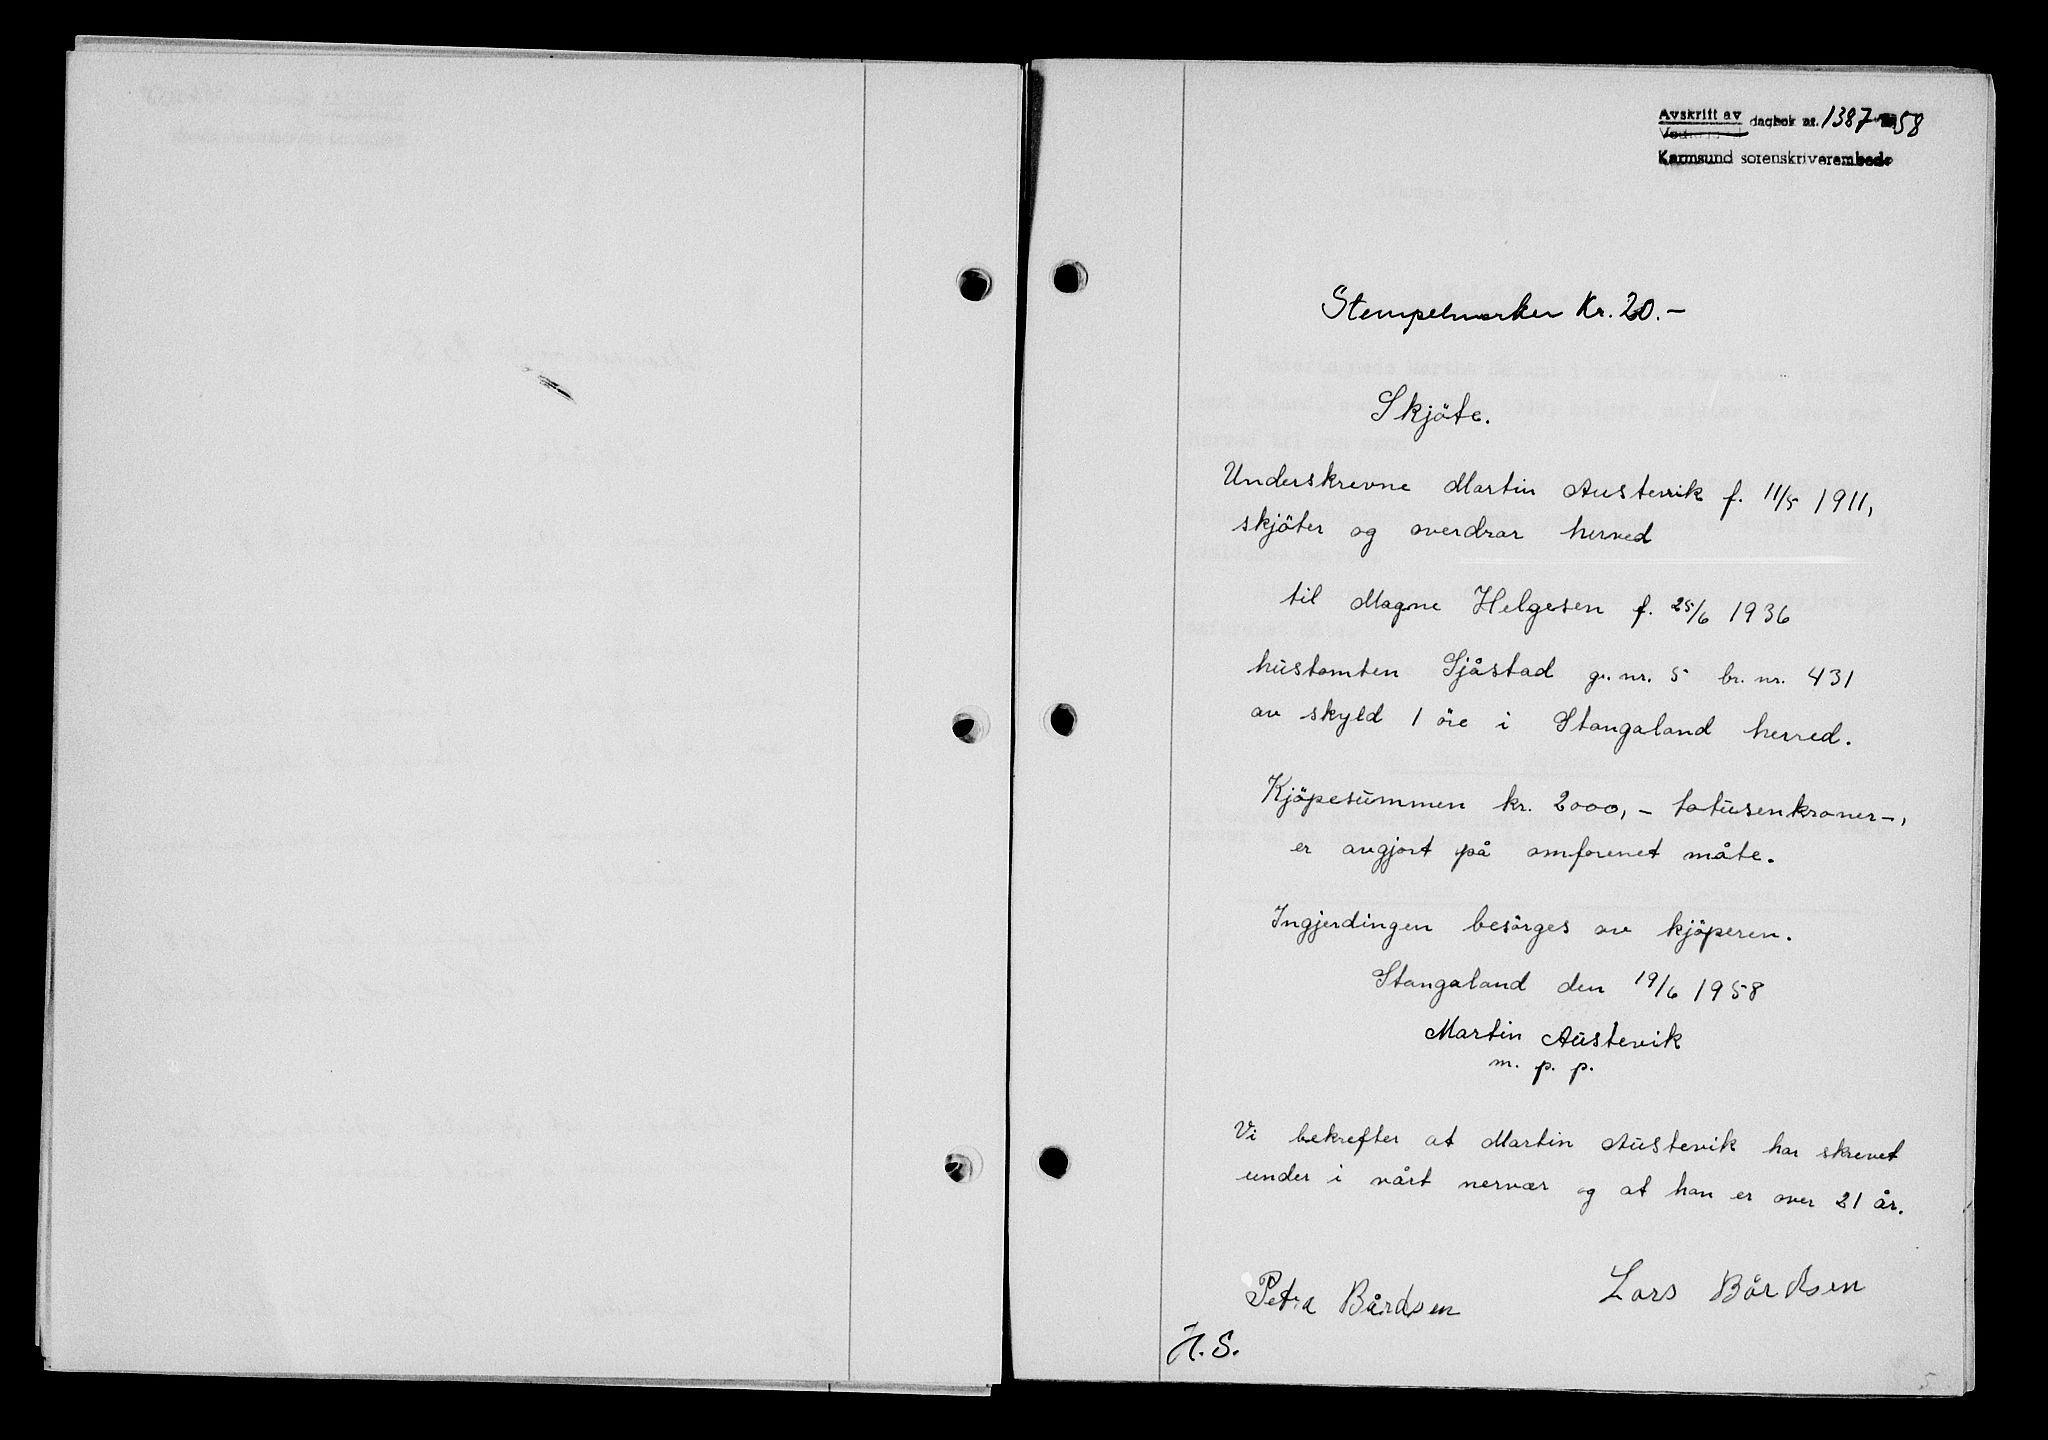 Avskrift av dagbok nr. 1387 58
Karmsund sorenskriverembede
Stempelmerker Kr. 20.-
Skjöte.
Underskrevne Martin Austevik f. 11/5 1911,
skjöter og overdrar herved
til Magne Helgesen f. 25/6 1936
hustomten Sjåstad gr. nr. 5 br. nr. 431
av skyld 1 öre i Stangaland herred.
Kjöpesummen kr. 2000,- totusenkroner-,
er avgjort på omforenet måte.
Ingjerdingen besörges av kjöperen.
Stangaland den 19/6 1958
Martin Austevik
m. p. p.
Vi bekrefter at Martin Austevik har skrevet
under i vårt nervær og at han er over 21 år.
Petra Bårdsen Lars Bårdsen
H. S.
5